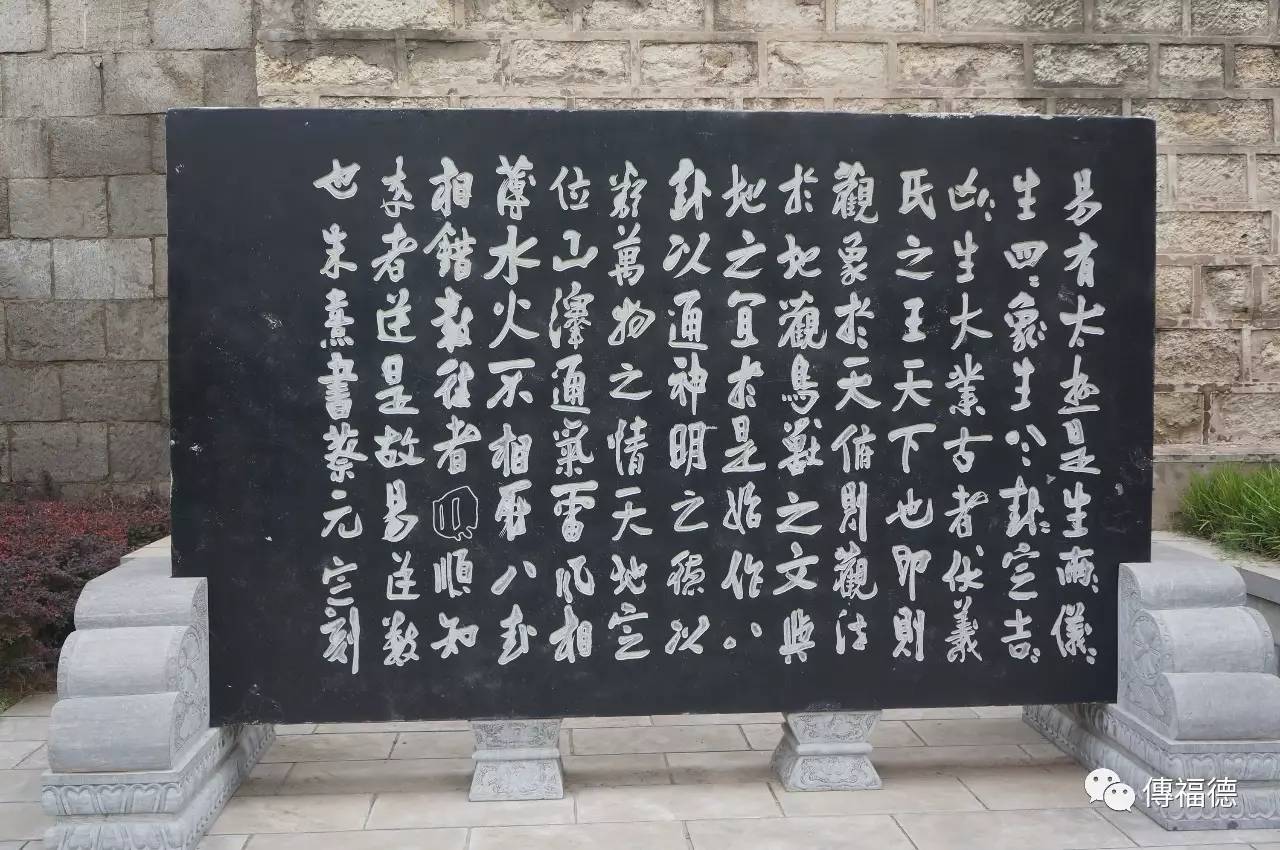 易有太極是生兩〻儀〻
生四〻象〻生八〻卦〻定吉〻
凶〻生大業古者伏羲
氏之王天下也卬則
觀象於天俯則觀法
於地觀鳥獸之文與
地之宜於是始作八
卦以通神明之德以
類萬物之情天地定
位山澤通氣雷風相
薄水火不相射八卦
相錯數往者順知
來者逆是故易逆數
也朱熹書蔡元定刻
傳福德